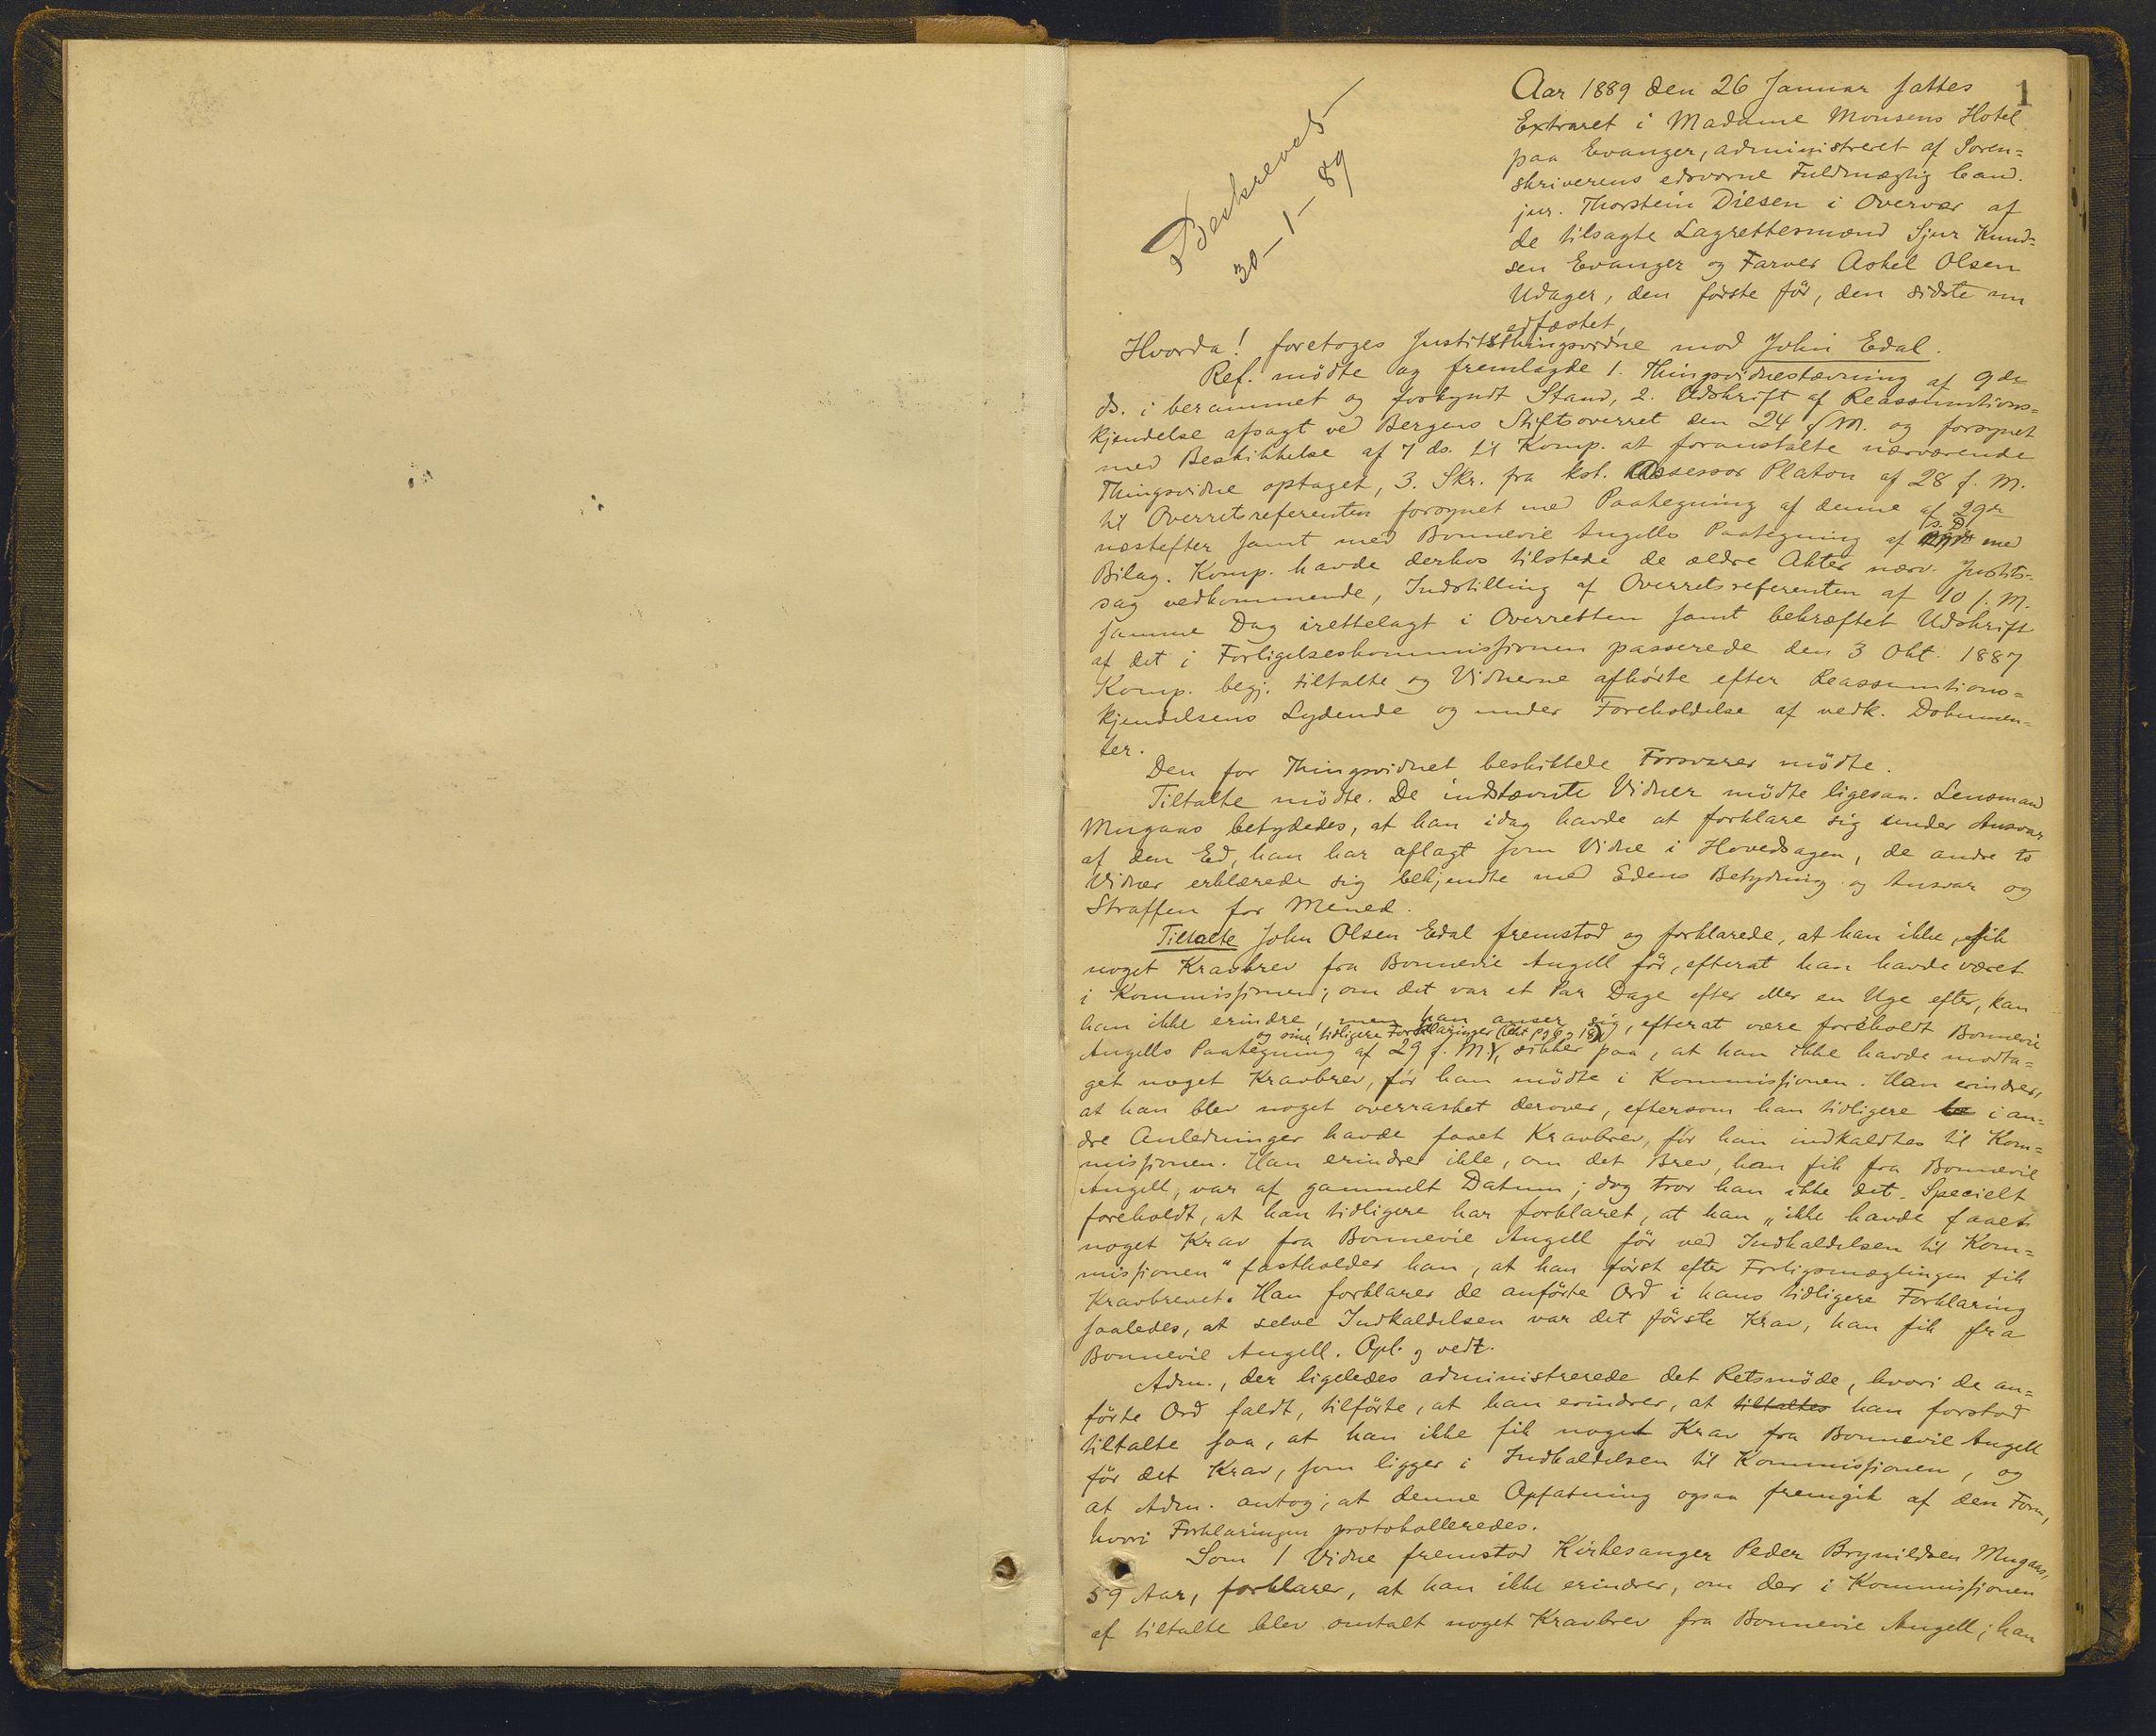 1
Beskrevet
30-1-89
Aar 1889 den 26 Januar sattes
Extraret i Madame Monsens Hotel
paa Evanger, administreret af Soren=
skriverens edsvorne Fuldmægtig Cand.
jur. Thorstein Diesen i Overvær af
de tilsagte Lagrettesmænd Sjur Knud=
sen Evanger og Farver Askel Olsen
Udager, den første før, den sidste nu
edfæstet,
Hvorda! foretoges Justitsthingsvidne mod John Edal.
Ref. mødte og fremlagde 1. Thingsvidnestævning af 9de
ds. i berammet og forkyndt Stand, 2. Udskrift af Reassumtions=
kjendelse afsagt ved Bergens Stiftsoverret den 24 f. M. og forsynet
med Beskikkelse af 7 ds. til Komp. at foranstalte nærværende
Thingsvidne optaget, 3. Skr. fra kst. Assessor Platou af 28 f. M.
til Overretsreferenten forsynet med Paategning af denne af 29de
næstefter samt med Bonnevie Angells Paategning af s. D. med
Bilag. Komp. havde derhos tilstede de ældre Akter nærv. Justits=
sag vedkommende, Indstilling af Overretsreferenten af 10 f. M.
samme Dag irettelagt i Overretten samt bekræftet Udskrift
af det i Forligelseskommissionen passerede den 3 Okt. 1887
Komp. begj. tiltalte og Vidnerne afhørte efter Reassumtions=
kjendelsens Lydende og under Foreholdelse af vedk. Dokumen=
ter.
Den for Thingsvidnet beskikkede Forsvarer mødte.
Tiltalte mødte. De indstævnte Vidner mødte ligesaa. Lensmand
Mugaas betydedes, at han idag havde at forklare sig under Ansvar
af den Ed, han har aflagt som Vidne i Hovedsagen, de andre to
Vidner erklærede sig bekjendte med Edens Betydning og Ansvar og
Straffen for Mened.
Tiltalte John Olsen Edal fremstod og forklarede, at han ikke fik
noget Kravbrev fra Bonnevie Angell før, efterat han havde været
i Kommissionen; om det var et Par Dage efter eller en Uge efter, kan
han ikke erindre, men han anser sig, efterat være foreholdt Bonnevie
og sine tidligere Forklaringer (Akt pg 6 og 18)
Angells Paategning af 29 f. M., sikker paa, at han ikke havde modta=
get noget Kravbrev, før han mødte i Kommissionen. Han erindrer,
at han blev noget overrasket derover, eftersom han tidligere i an=
dre Anledninger havde faaet Kravbrev, før han indkaldtes til Kom=
missionen. Han erindrer ikke, om det Brev, han fik fra Bonnevie
Angell, var af gammelt Datum; dog tror han ikke det. Specielt
foreholdt, at han tidligere har forklaret, at han „ikke havde faaet
noget Krav fra Bonnevie Angell før ved Indkaldelsen til Kom=
missionen" fastholder han, at han først efter Forligsmæglingen fik
Kravbrevet. Han forklarer de anførte Ord i hans tidligere Forklaring
saaledes, at selve Indkaldelsen var det første Krav, han fik fra
Bonnevie Angell. Opl. og vedt.
Adm., der ligeledes administrerede det Retsmøde, hvori de an=
førte Ord faldt, tilførte, at han erindrer, at tiltaltes han forstod
tiltalte saa, at han ikke fik noget Krav fra Bonnevie Angell
før det Krav, som ligger i Indkaldelsen til Kommissionen, og
at Adm. antog, at denne Opfatning ogsaa fremgik af den Form,
hvori Forklaringen protokolleredes.
Som 1 Vidne fremstod Kirkesanger Peder Brynildsen Mugaas,
59 Aar, forklarer, at han ikke erindrer, om der i Kommissionen
af tiltalte blev omtalt noget Kravbrev fra Bonnevie Angell; han